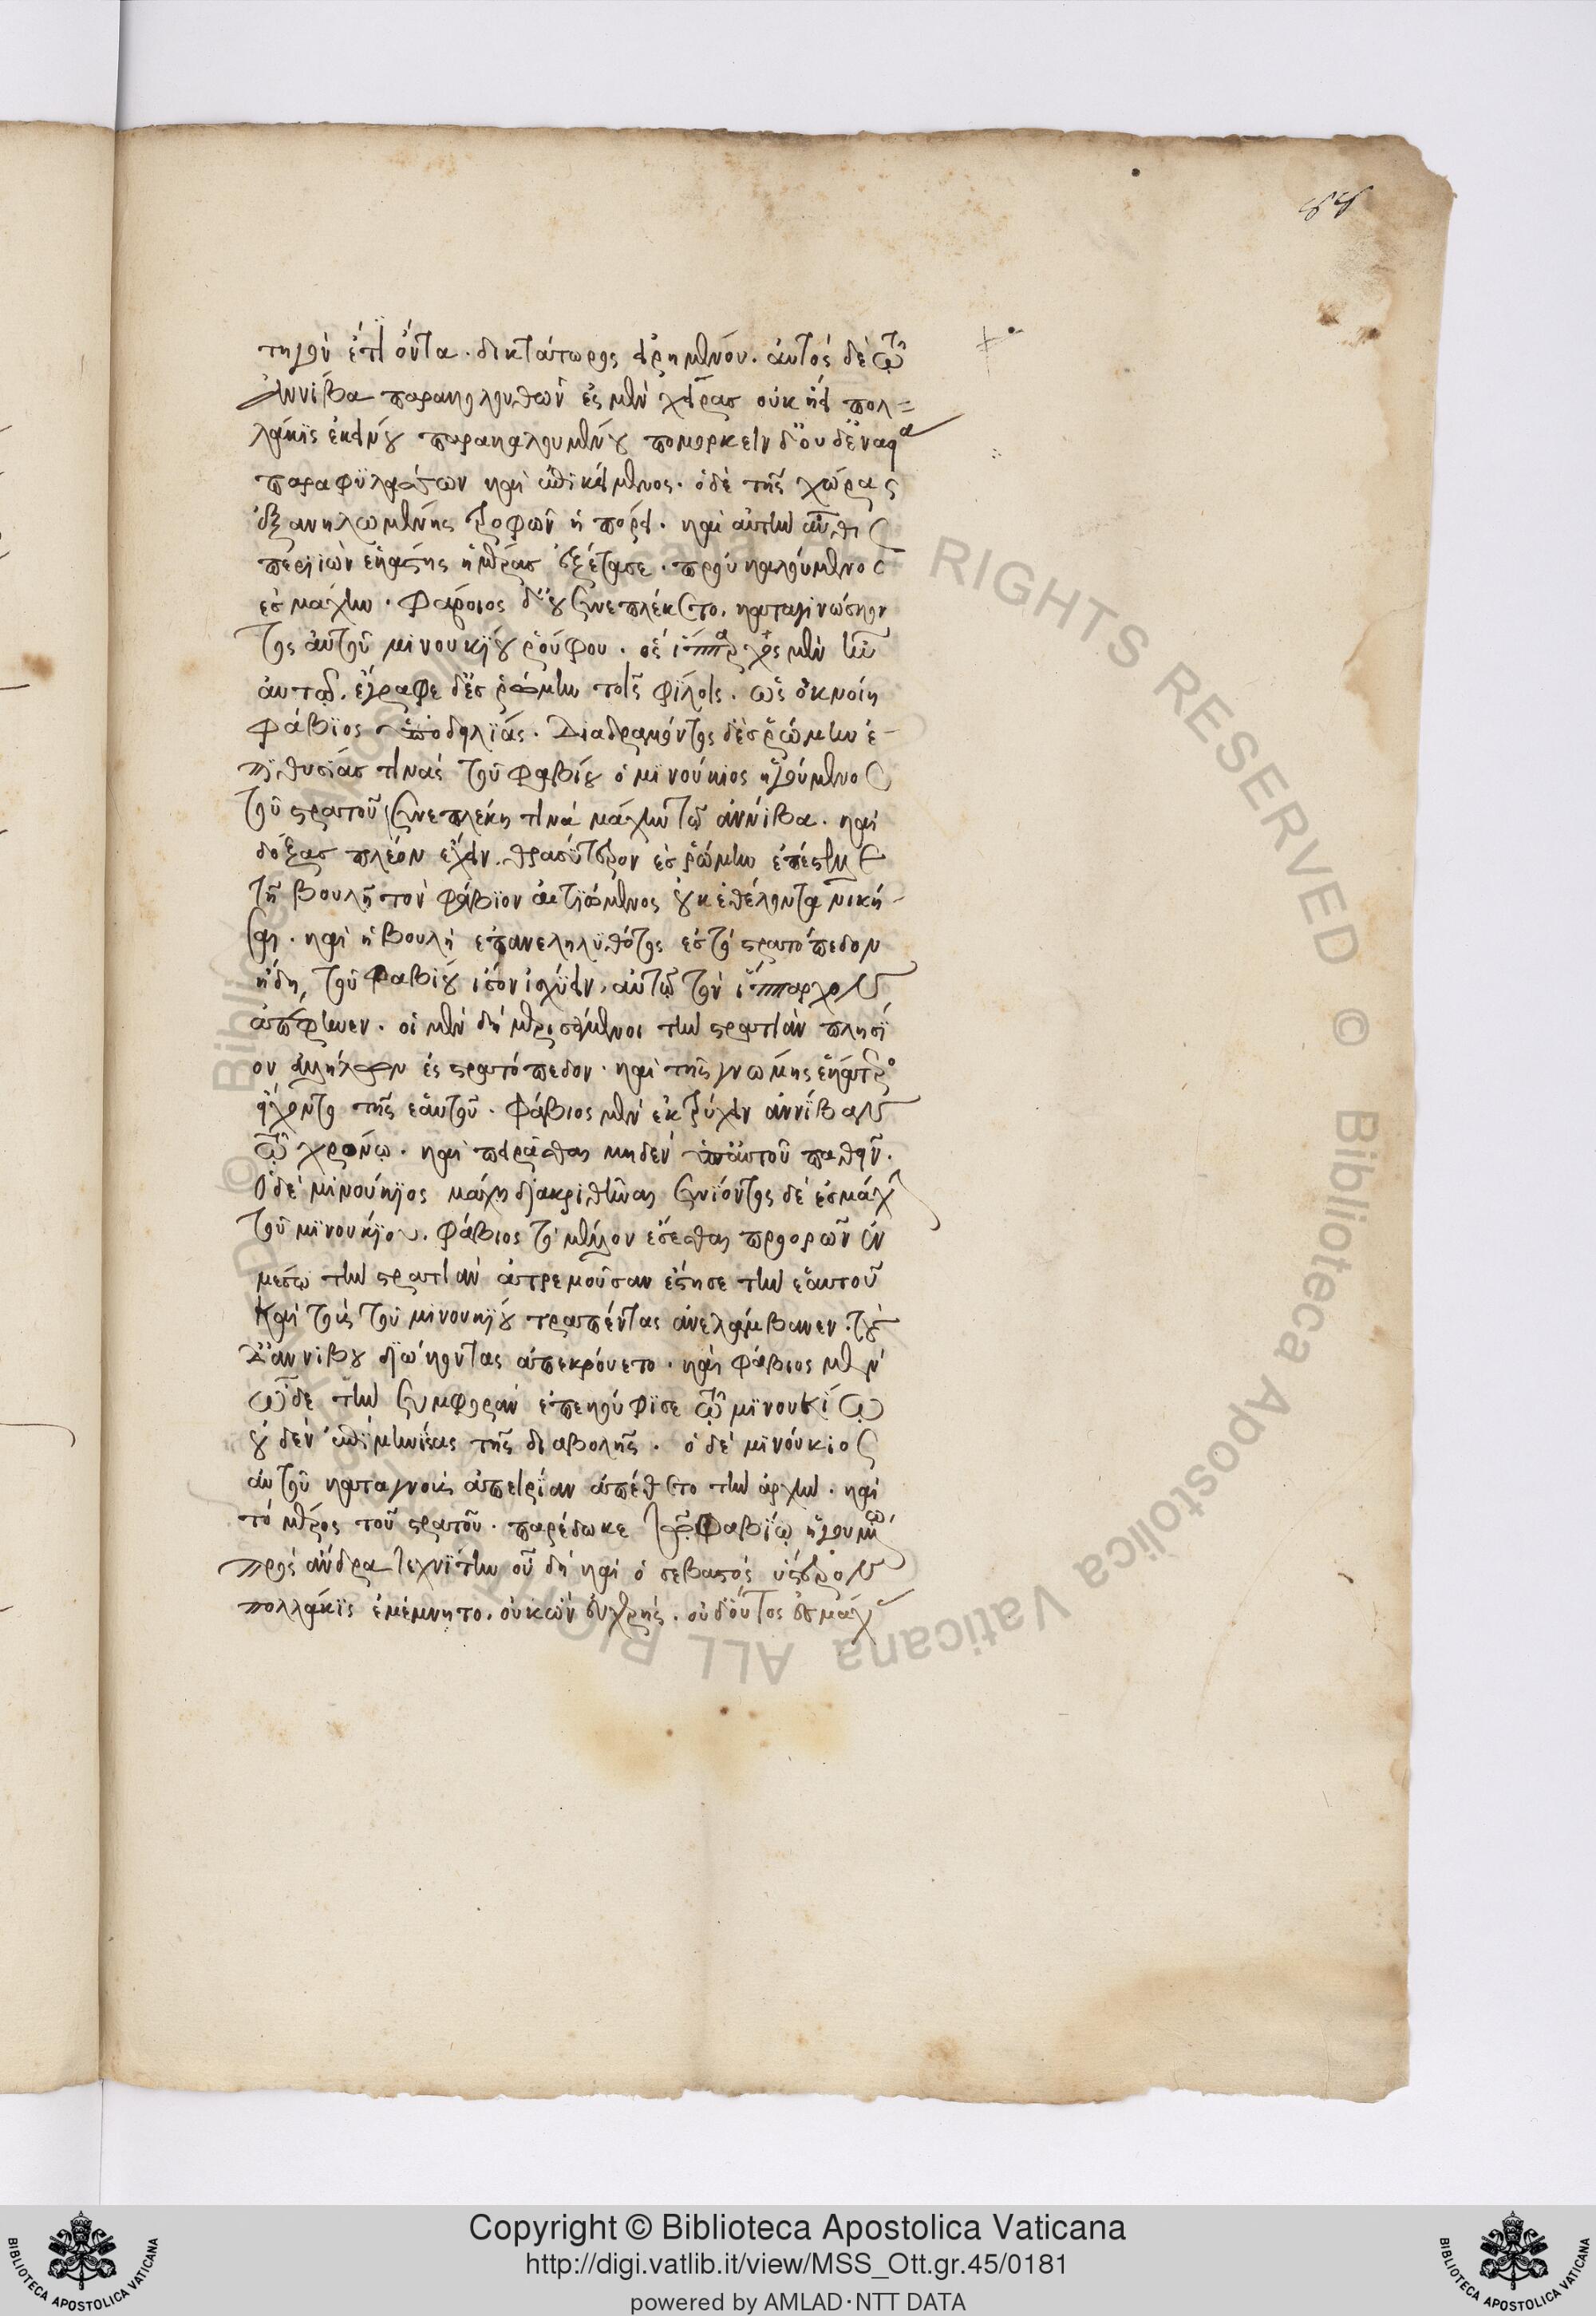 88
τηγὸν ἔτι ὄντα. δικτάτωρος εἰρημένου. αὐτὸς δὲ τῷ
Ἀννίβᾳ παρακολουθῶν ἐς μὲν χεῖρας οὐκ ᾔει πολ=
λάκις ἐκείνου παρακαλουμένου πολιορκεῖν δ' οὐδένα
παραφυλάσσων καὶ ἐπικείμενος. ὁ δὲ τῆς χώρας
ἐξανηλωμένης τροφῶν ἠπόρει. καὶ αὐτὴν αὖθις
περιϊὼν ἑκάστης ἡμέρας ἐξέτασσε. προκαλούμενος
ἐς μάχην. Φάβιος δ' οὐ συνεπλέκετο, καταγινώσκον
τος αὐτοῦ μινουκίου ῥούφου. ὃς ἵππαρχος μὲν ἦν
αὐτῷ. ἔγραφε δ' ἐς ῥώμην τοῖς φίλοις. ὡς ὀκνοίη
Φάβιος ὑπὸ δειλίας. Διαδραμόντος δ' ἐς ῥώμην ἐ-
πὶ θυσίας τινὰς τοῦ Φαβίου ὁ μινούκιος ἡγούμενος
τοῦ στρατοῦ συνεπλέκη τινὰ μάχην τῷ ἀννίβα. καὶ
δόξας πλέον ἔχειν. θρασύτερον ἐς ῥώμην ἐπέστελλε
τῇ βουλῇ τὸν Φάβιον αἰτιώμενος οὐκ ἐθέλοντα νική-
σαι. καὶ ἡ βουλὴ ἐπανεληλυθότος ἐς τὸ στρατόπεδον
ἤδη, τοῦ Φαβίου ἴσον ἰσχύειν, αὐτῷ τὸν ἵππαρχον
ἀπέφηνεν. οἱ μὲν δὴ μερισάμενοι τὴν στρατιὰν πλησί
ον ἀλλήλων ἐς στρατόπεδον. καὶ τῆς γνώμης ἑκάτερος
εἴχοντο τῆς ἑαυτοῦ. Φάβιος μὲν ἐκτρύχειν ἀννίβαν
τῷ χρόνῳ. καὶ πειρᾶσθαι μηδὲν ὑπ' αὐτοῦ παθεῖν.
Ὁ δὲ μινούκιος μάχῃ διακριθῆναι συνϊόντος δὲ ἐς μάχην
τοῦ μινουκίου. Φάβιος τὸ μέλλον ἔσεσθαι προορῶν ἐν
μέσῳ τὴν στρατιὰν ἀτρεμοῦσαν ἔστησε τὴν ἑαυτοῦ
καὶ τοὺς τοῦ μινουκίου τραπέντας ἀνελάμβανεν. τοὺς
δ' ἀννίβου διώκοντας ἀπεκρούετο. καὶ Φάβιος μὲν
ὧδε τὴν συμφορὰν ἐπεκούφισε τῷ μινουκίῳ
οὐδὲν ἐπιμηνίσας τῆς διαβολῆς. ὁ δὲ μινούκιος
αὑτοῦ καταγνοὺς ἀπειρίαν ἀπέθετο τὴν ἀρχὴν. καὶ
τὸ μέρος τοῦ στρατοῦ. παρέδωκε τῷ Φαβίῳ ἡγουμένῳ
πρὸς ἄνδρα τεχνίτην οὗ δὴ καὶ ὁ σεβαστὸς ὕστερον
πολλάκις ἐμέμνητο. οὐκ ὢν εὐχερὴς. οὐδ' οὗτος ἐς μάχην
Copyright © Biblioteca Apostolica Vaticana
http://digi.vatlib.it/view/MSS_Ott.gr.45/0181
powered by AMLAD·NTT DATA